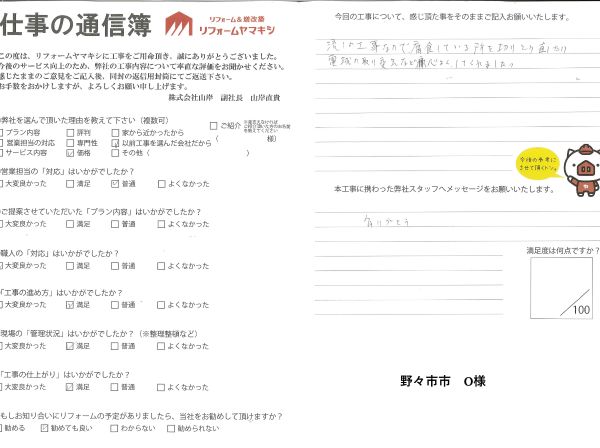 仕事の通信簿
リフォーム&増改築
リフォームヤマキシ
この度は、リフォームヤマキシに工事をご用命頂き、誠にありがとうございました。
今後のサービス向上のため、弊社の工事内容について率直な評価をお聞かせください。
感じたままのご意見をご記入後、同封の返信用封筒にてご返送下さい。
お手数をおかけしますが、よろしくお願い申し上げます。
株式会社山岸 副社長 山岸直貴
弊社を選んで頂いた理由を教えて下さい（複数可）
プラン内容 評判 家から近かったから
営業担当の対応 専門性 以前工事を選んだ会社だから
サービス内容 価格 その他（ ）
ご紹介
（ 様）
営業担当の「対応」はいかがでしたか？
大変良かった 満足 普通 よくなかった
ご提案させていただいた「プラン内容」はいかがでしたか？
大変良かった 満足 普通 よくなかった
職人の「対応」はいかがでしたか？
大変良かった 満足 普通 よくなかった
「工事の進め方」はいかがでしたか？
大変良かった 満足 普通 よくなかった
現場の「管理状況」はいかがでしたか？（※整理整頓など）
大変良かった 満足 普通 よくなかった
「工事の仕上がり」はいかがでしたか？
大変良かった 満足 普通 よくなかった
もしお知り合いにリフォームの予定がありましたら、当社をお勧めして頂けますか？
勧める 勧めても良い わからない 勧められない
今回の工事について、感じ頂た事をそのままご記入お願いいたします。
工事なので腐食している所を切りとり直したり
電球の取り変えなど
してくれました。
今後の参考に
させて頂くトン。
本工事に携わった弊社スタッフへメッセージをお願いいたします。
ありがとう
満足度は何点ですか？
100
野々市市 O様